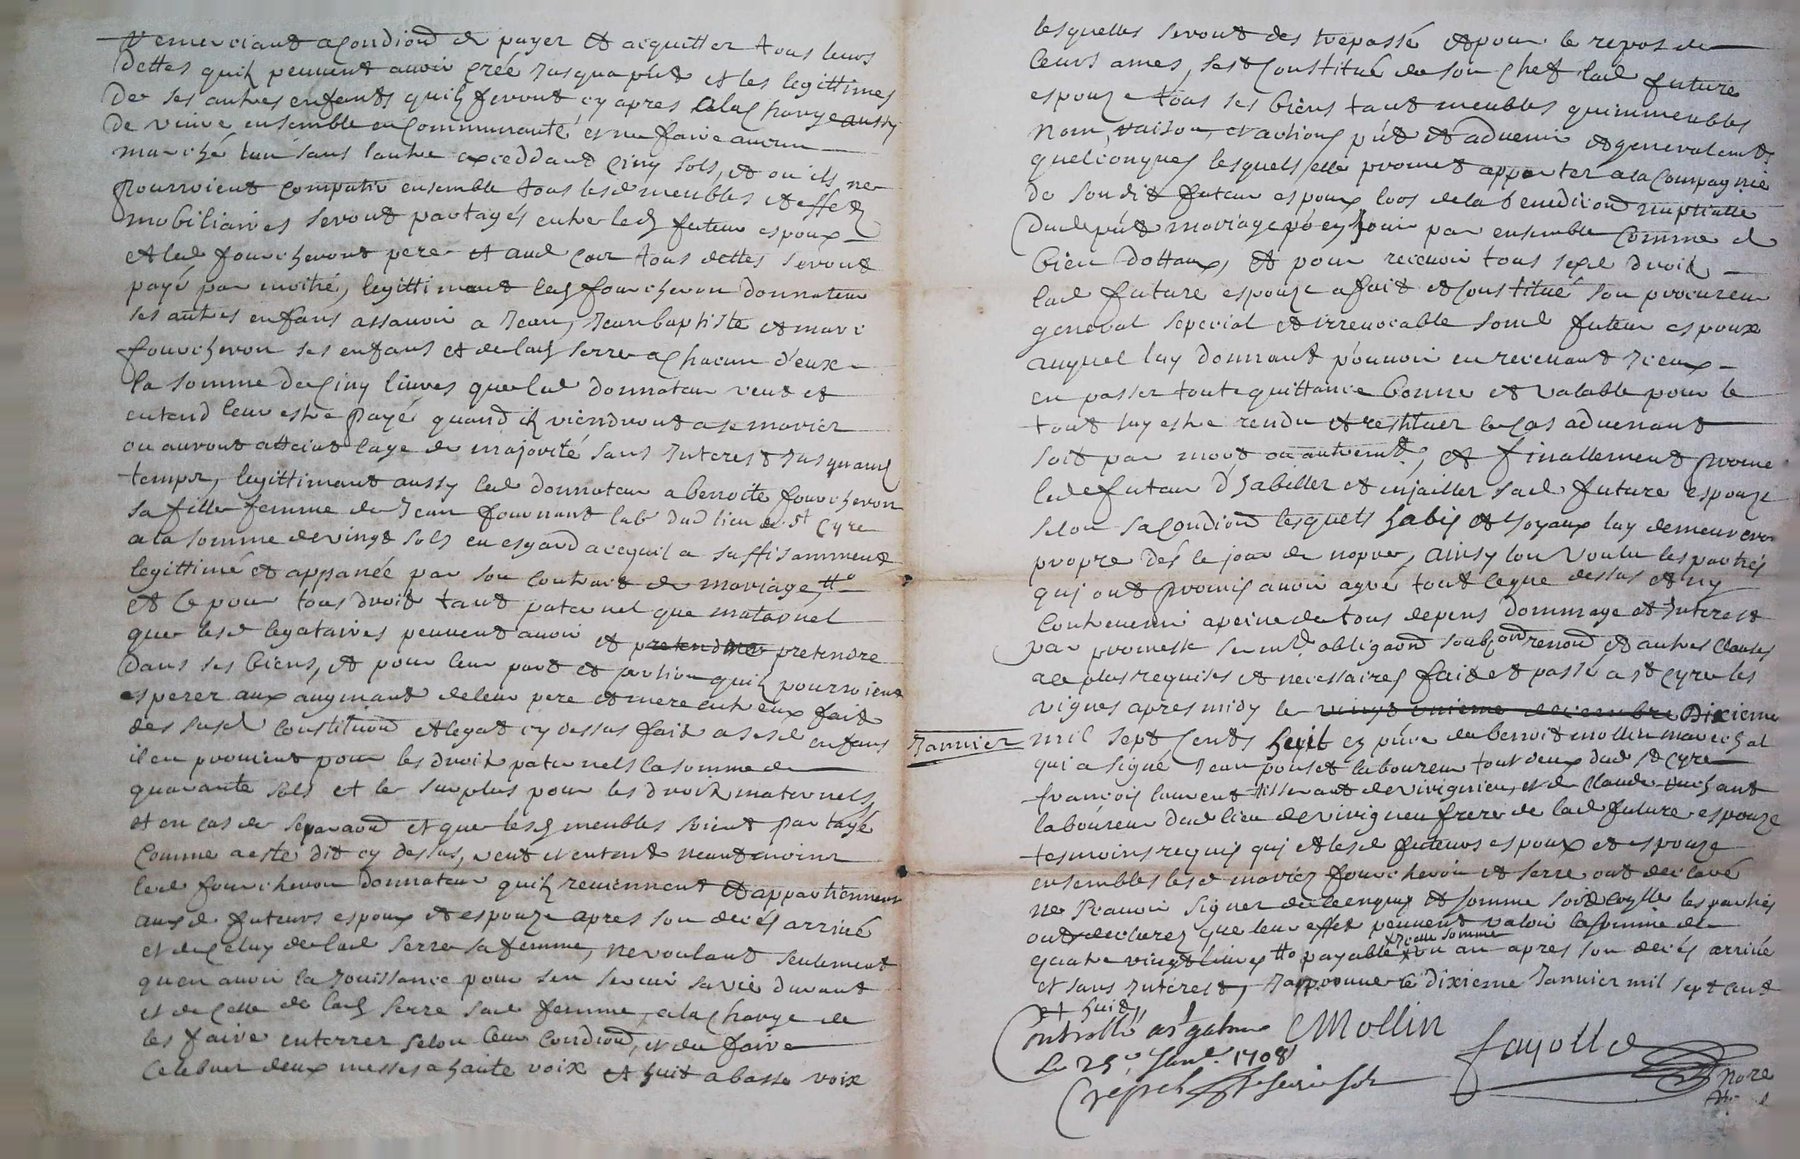 remerciant a condiond de payer et acquitter tous leurs
dettes quilz peuvent avoir créé jusqua pnt et les legittimes
de ses autres enfants quilz feront cy apres a la charge aussy
de vivre ensemble en communauté et ne faire aucun
marché lun sans lautre exceddant cinq sols, et ou ils ne
pourroient compatir ensemble tous lesd meubles et effetz
mobiliaires seront partagés entre lesd futeur espoux
et led fourcheront pere et aud cas tous dettes seront
payé par moitié, legittimant led fourcheron donnateur
ses autres enfans assavoir a Jean, Jean baptiste et marie
fourcheron ses enfans et de lad serre a chacun d'eux
la somme de cinq livres que led donnateur veut et
entend leur estre payé quand ilz viendront a se marier
ou auront atteint lage de majorité sans Interest Jusquaud
temps, legittimant aussy led donnateur a benoite fourcheron
sa fille femme de Jean fournant lab dud lieu de St Cyre
a la somme de vingt sols en esgard a ce quil a suffisamment
legittimé et appanée par son contract de mariage
et ce pour tous droit tant paternel que maternel
que lesd legataires peuvent avoir et pretendre pretendre
dans ses biens, et pour leur part et portion quilz pourroient
esperer aux augmant de leur pere et mere entre eux fait
des susd constitution et legat cy dessus fait a sesd enfans
il en provient pour les droit paternels la somme de
quarante sols et le surplus pour les droit maternels
et en cas de separaond et que lesd meubles soient partagé
comme a esté dit cy dessus, veut et entend neantmoins
led fourcheron donnateur quilz reviennent et appartiennent
auxd futeurs espoux et espouze apres son decés arrivé
et de celuy de lad serre sa femme, ne voulant seulement
quen avoir la Jouissance pour sen servir sa vie durant
et de celle de lad serre sad femme, a la charge de
les faire enterrer selon leur condiond, et de faire
celebrer deux messes a haute voix et huit a basse voix
lesquelles seront des trepassé et pour le repos de
leurs ames, sest constitué de son chef lad future
espouze tous ses biens tant meubles quimmeubles
nom, raison, et actions pnt et advenir et generalemt
quelconques lesquels elle promet apporter a la compagnie
de sondit futeur espoux lors de la benediciond nuptialle
dud pnt mariage po en jouir par ensemble comme d
bien dottaux, et pour recevoir tous sesd droit
lad future espouze a fait et constitué son procureur
general special et irrevocable sond futeur espoux
auquel luy donnant pouvoir en recevant Iceux
en passer toute quittance bonne et valable pour le
tout luy estre rendu et restituer le cas advenant
soit par mort ou autremt, et finallement promet
led futeur d'habiller et enjailler sad future espouze
selon sa condiond lesquels habis et Joyaux luy demeureron
propre dés le jour de nopces, ainsy lon voulu les parties
qui ont promis avoir agré tout ce que dessus et ny
contrevenir a peine de tous depens dommage et Interest
par promesse sermt obligaond soubzond renond et autres clauses
a ce plus requises et necessaires fait et passé a st cyre les
vignes apres midy le vingt unieme decembre Dixieme
Janvier mil sept cents huit en pnce de benoit mollin marechal
qui a signé Jean ponset laboureur tout deux dud St Cyre
francois laurent tisserant de virigneu, et de Claude
laboureur dud lieu de virigneu frere de lad future espouze
tesmoins requis qui et lesd futeurs espoux et espouze
ensembles lesd mariez fourcheron et serre ont declaré
ne scavoir signer de ce enquis et sommé soit les parties
ont declarez que leur effet peuvent valoir la somme de
quatre vingt livres payable Icelle somme un an apres son decés arrivé
et sans Interest, Japprouve le dixieme Janvier mil sept cent
et huit
Controllé a st galmier CMollin fayolle
Le 25e Janv. 1708
nore